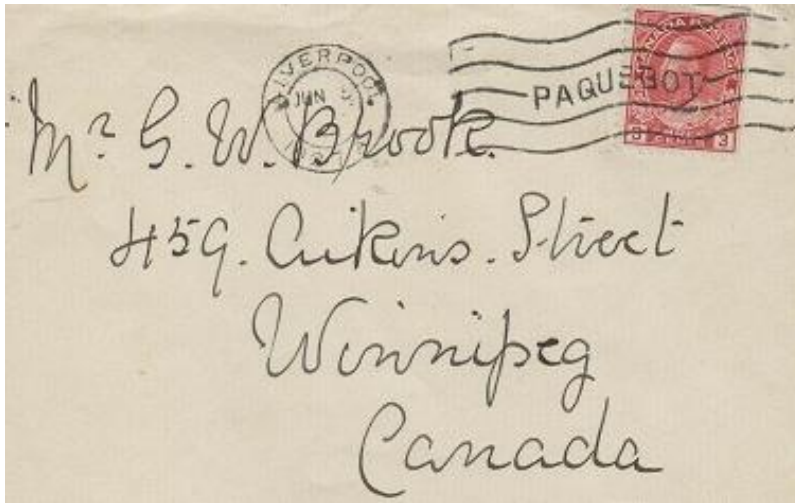 LIVERPOOL
JUN
PAQUEBOT
CANADA POSTAGE
3 3
Mr. G. W. Brook.
459. Aikins. Street
Winnipeg
Canada